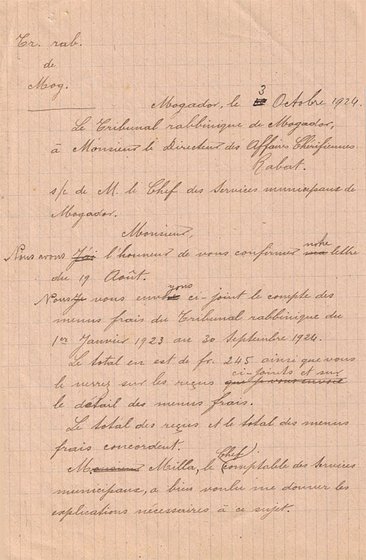 Tr. rab.
de
Mog.
Mogador, le 3 Octobre 1924.
Le Tribunal rabbinique de Mogador,
à Monsieur le Directeur des Affaires Chérifiennes
Rabat.
s/c de M. le Chef des Services municipaux de
Mogador.
Monsieur,
Nous avons J'ai l'honneur de vous confirmer notre ma lettre
du 19 Août.
Nous vous envoyons ci-joint le compte des
menus frais du Tribunal rabbinique du
1er Janvier 1923 au 30 Septembre 1924.
Le total en est de fr. 245 ainsi que vous
le verrez sur les reçus ci-joints et sur que je vous envoie
le détail des menus frais.
Le total des reçus et le total des menus
frais concordent.
M. Milla, le Chef Comptable des Services
municipaux, a bien voulu me donner les
explications nécessaires à ce sujet.